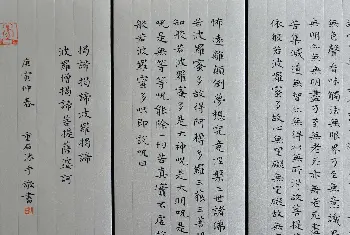 無色聲香味觸法無眼界乃至無意識
無明亦無無明盡乃至無老死亦無老死
苦集滅道無智亦無得以無所得故菩提
依般若波羅蜜多故心無罣礙無罣礙故無
怖遠離顛倒夢想究竟涅槃三世諸佛
若波羅蜜多故得阿耨多羅三藐三菩
知般若波羅蜜多是大神咒是大明咒是
咒是無等等咒能除一切苦真實不虛
般若波羅蜜多咒即說咒曰
揭諦揭諦波羅揭諦
波羅僧揭諦菩提薩婆訶
庚寅仲春 敬書